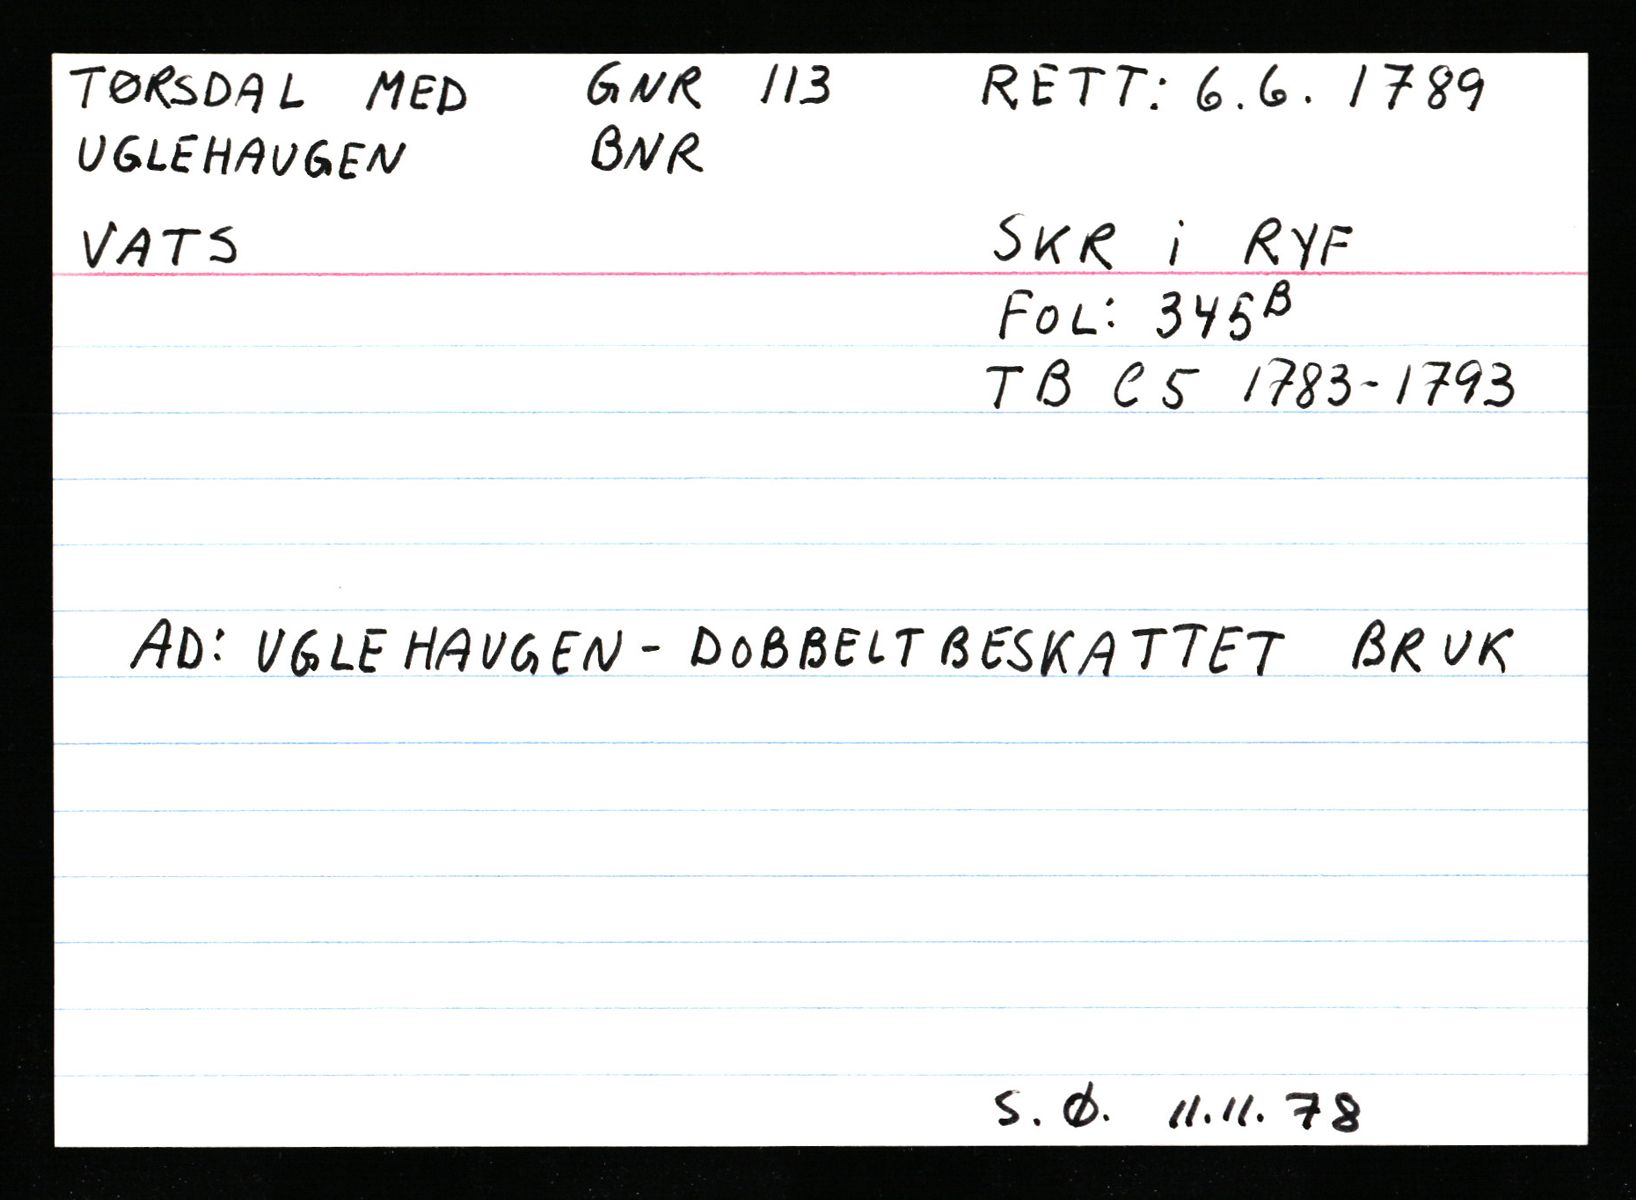 TØRSDAL MED GNR 113 RETT: 6.6. 1789
UGLEHAUGEN BNR
VATS SKR i RYF
FOL: 345B
TB C5 1783-1793
AD: UGLEHAUGEN - DOBBELTBESKATTET BRUK
S. Ø. 11.11.78